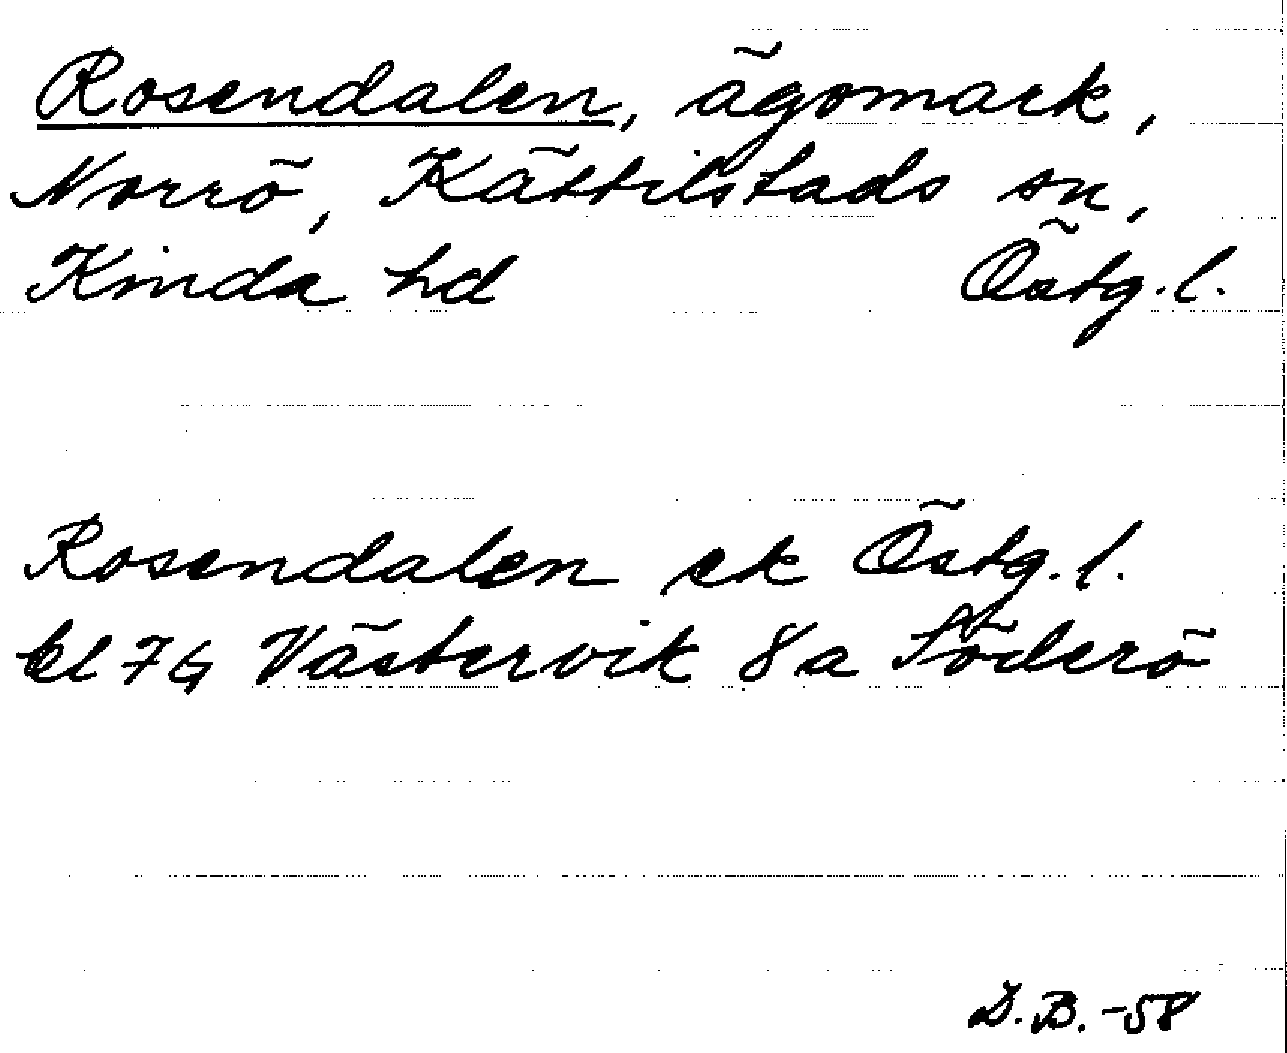 Rosendalen, ägomark,
Norrö, Kättilstads sn,
Kinda hd Östg. l.
Rosendalen ek Östg. l.
bl 7G Västervik 8a Söderö
D.B. -58